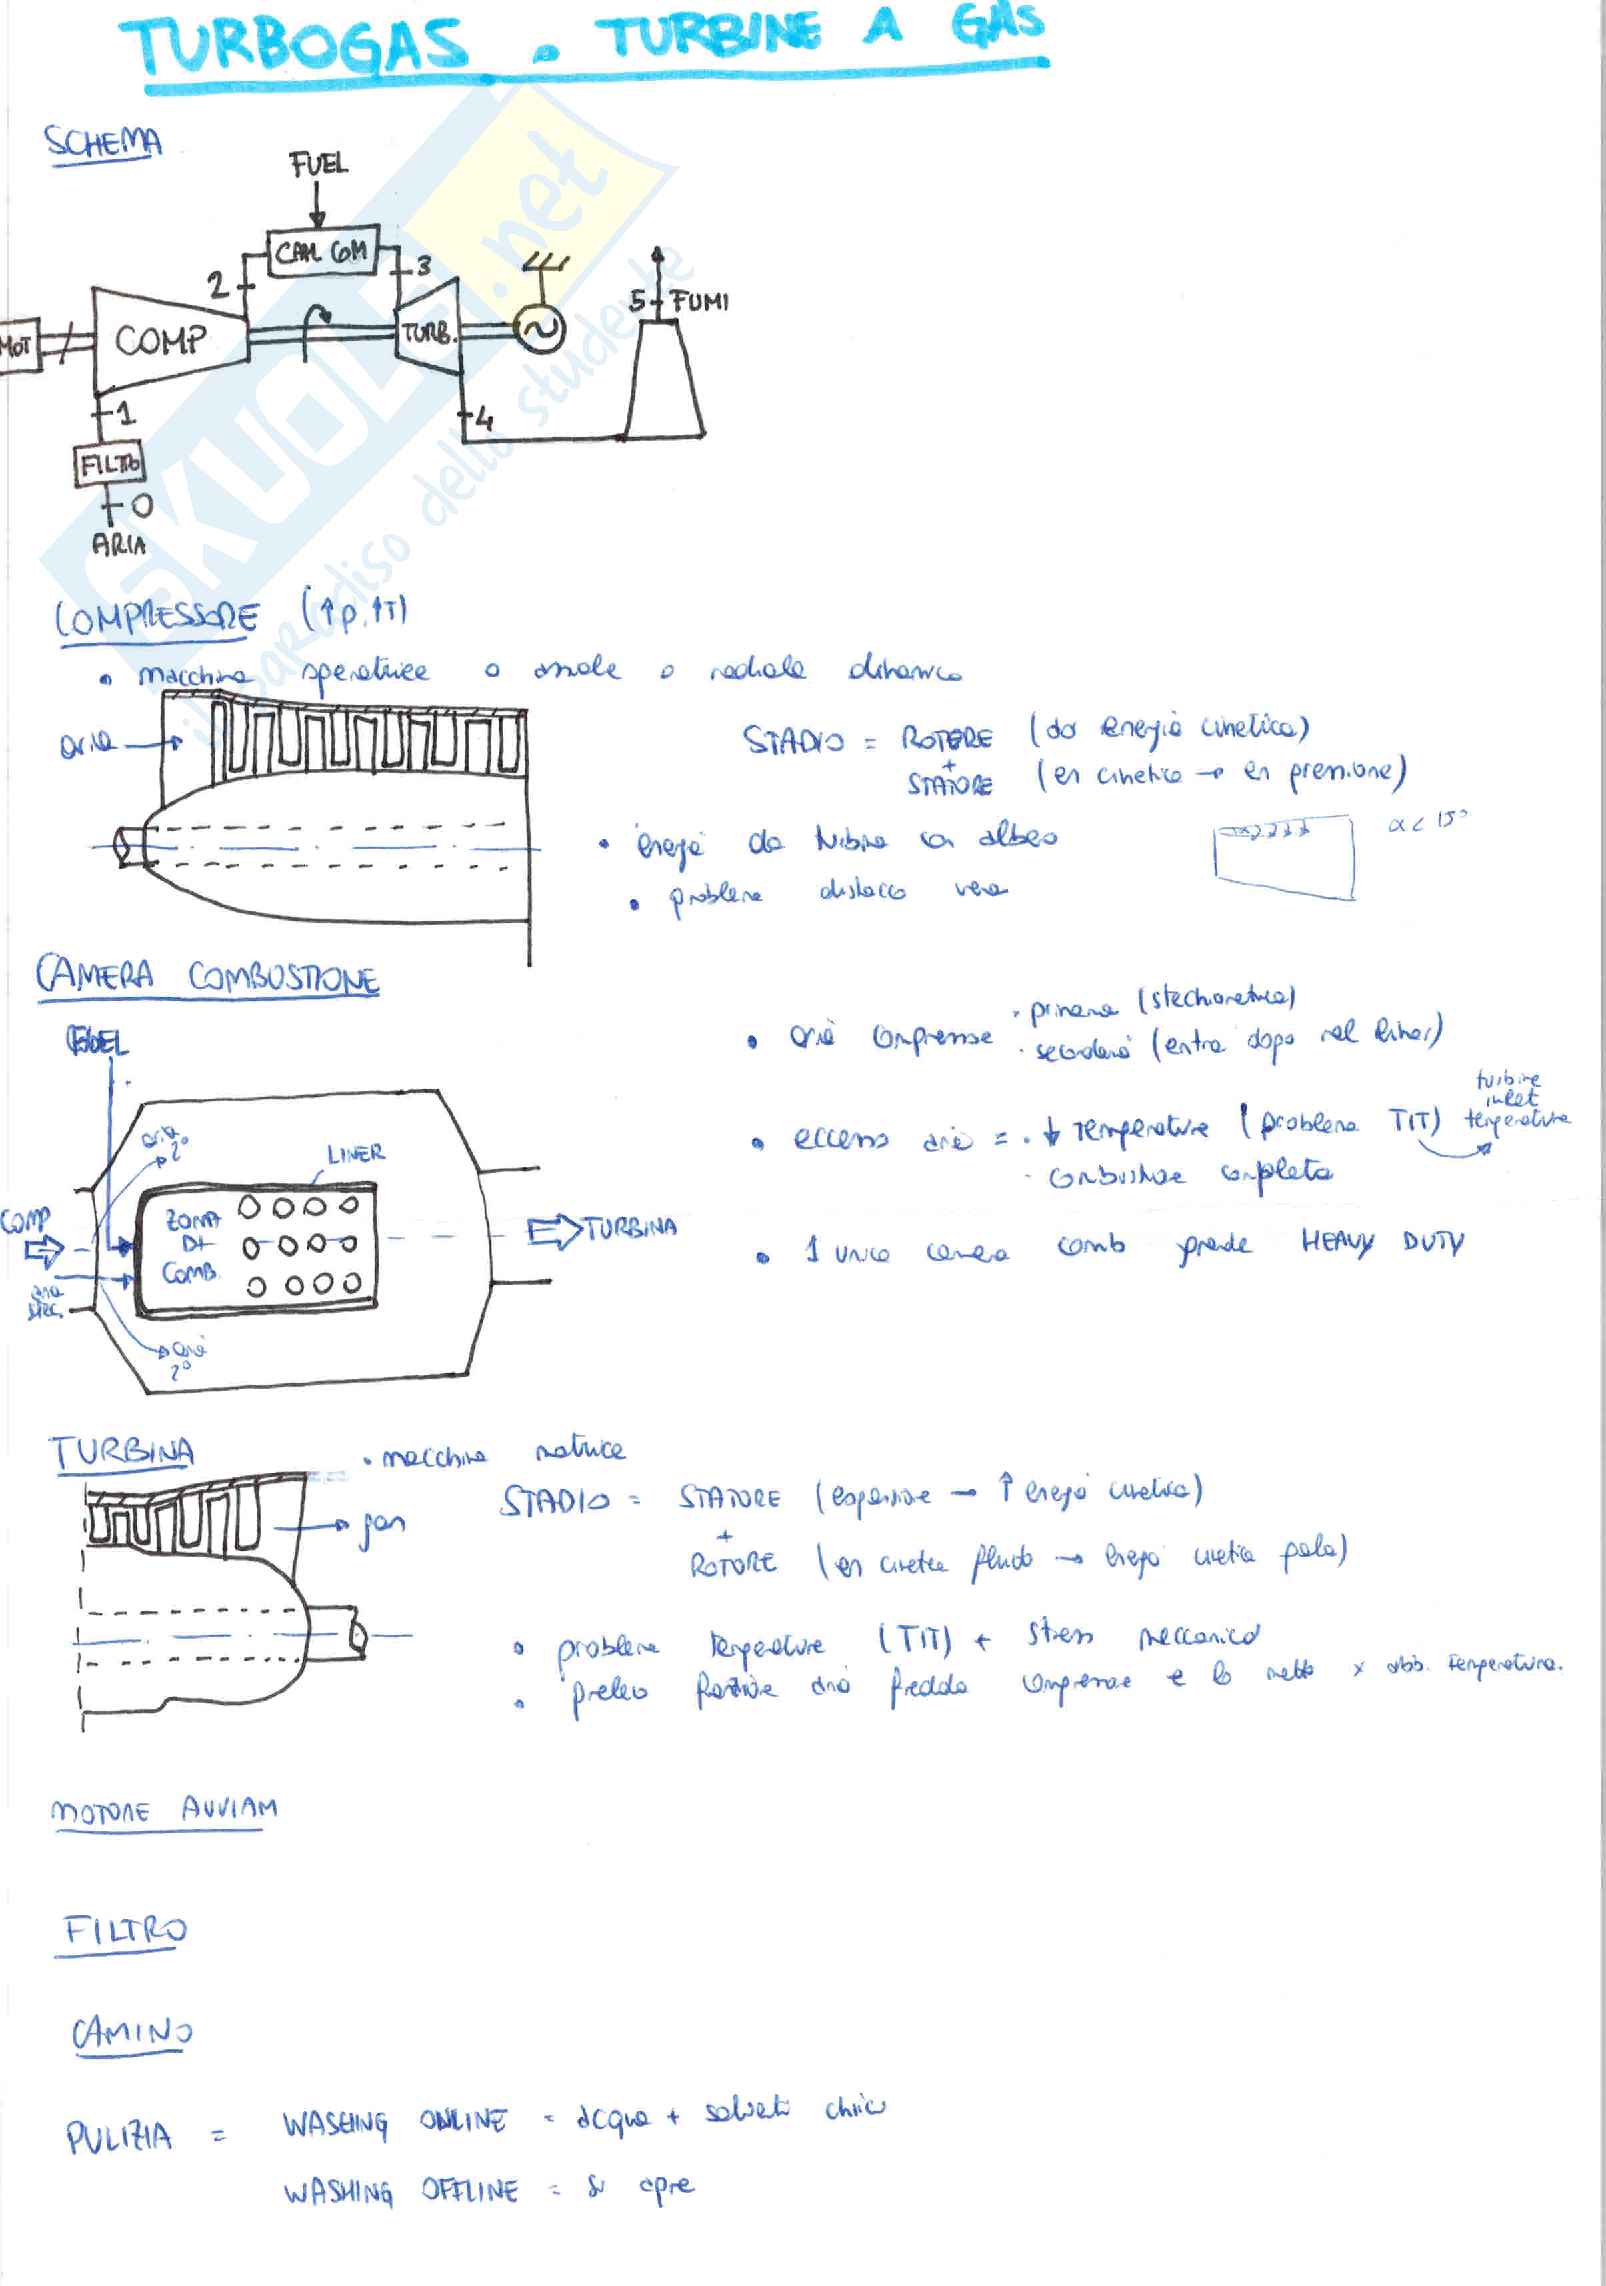 TURBOGAS . TURBINE A GAS
SCHEMA
FUEL
CAM COM
2
3
MOT
COMP
TURB.
5 FUMI
1
4
FILTRO
0
ARIA
SKUOLA.net
il paradiso dello studente
COMPRESSORE (↑p, ↑T)
• macchina operatrice o assiale o radiale dinamico
aria
STADIO = ROTORE (do energia cinetica)
+
STATORE (en cinetica → en pressione)
• energia da turbina con albero
α < 15°
• problema distacco vena
CAMERA COMBUSTIONE
FUEL
• aria compressa
· primaria (stechiometrica)
· secondaria (entra dopo nel liner)
aria 2°
LINER
• eccesso aria = · ↓ Temperature (problema TIT)
turbine inlet temperature
· combustione completa
COMP
ZONA DI COMB.
TURBINA
• 1 unica camera comb grande HEAVY DUTY
aria
aria 2°
TURBINA
• macchina motrice
STADIO = STATORE (espansione → ↑ energia cinetica)
+
ROTORE (en cinetica fluido → energia cinetica pala)
gas
• problema temperature (TIT) + stress meccanico
• prelevo frazione aria fredda compressore e la metto x abb. temperatura.
MOTORE AVVIAM
FILTRO
CAMINO
PULIZIA = WASHING ONLINE = acqua + solventi chimici
WASHING OFFLINE = si apre